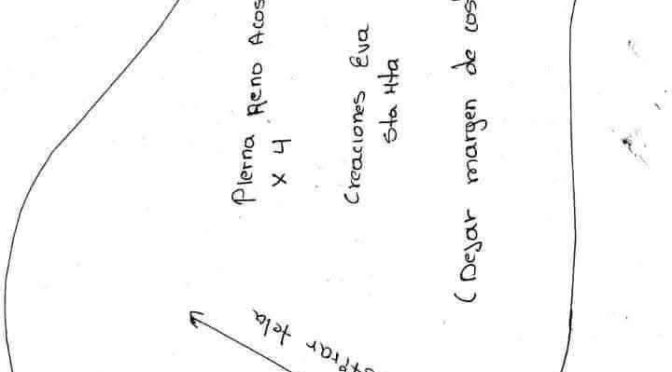 Pierna Reno Acos
x 4
Creaciones Eva
Sta Mta
(Dejar margen de cos
estirar tela